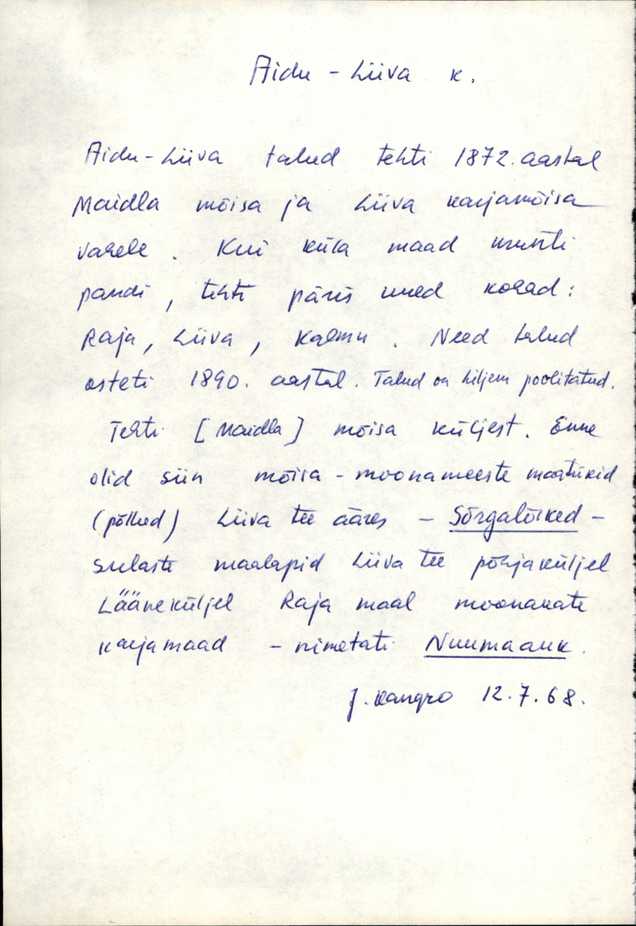 Aidu - Liiva k.
Aidu-Liiva talud tehti 1872. aastal
Maidla mõisa ja Liiva karjamõisa
vahele. Kui küla maad kruniti
pandi, tehti päris uued kohad:
Raja, Liiva, Kalmu. Need talud
osteti 1890. aastal. Talud on hiljem poolitatud.
Tehti [Maidla] mõisa küljest. Enne
olid siin mõisa - moonameeste maatükid
(põllud) Liiva tee ääres - Sõrgalõiked -
sulaste maalapid Liiva tee põhjaküljel
Lääneküljel Raja maal moonakate
karjamaad - nimetati Nuumaauk.
J. Kangro 12.7.68.